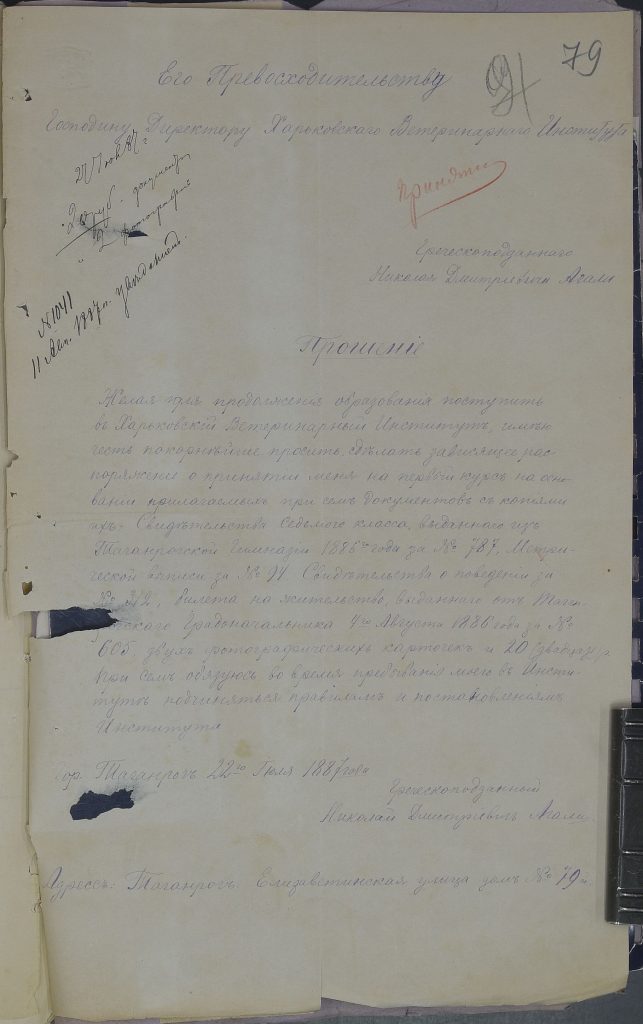 79
91
Его Превосходительству
Господину Директору Харьковскаго Ветеринарнаго Института
27 Іюл 87 г.
20 руб. документы
2 фотографіи
№ 1041
11 Авг. 1887 г.
Принять
Греческоподданнаго
Николая Дмитріевича Агали
Прошеніе
Желая для продолженія образованія поступить
въ Харьковскій Ветеринарный Институтъ, имѣю
честь покорнѣйше просить сдѣлать зависящее рас-
поряженіе о принятіи меня на первый курсъ на осно-
ваніи прилагаемыхъ при семъ документовъ съ копіями
ихъ: Свидѣтельства седьмого класса, выданнаго изъ
Таганрогской Гимназіи года за № 787, Метри-
ческой выписи за № 94. Свидѣтельства о поведеніи за
№ 312, билета на жительство, выданнаго отъ Таган-
рогскаго Градоначальника Августа 1886 года за №
605, двухъ фотографическихъ карточекъ и 20 (двадцать) р.
При семъ обязуюсь во время пребыванія моего въ Инсти-
тутѣ подчиняться правиламъ и постановленіямъ
Института
Гор. Таганрогъ 22го Іюля 1887 года
Греческоподданный
Николай Дмитріевичъ Агали
Адрессъ: Таганрогъ Елизаветинская улица домъ № 79й.